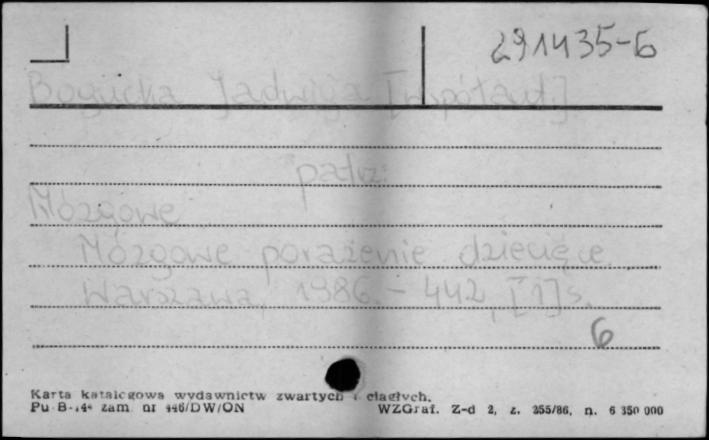 291435-6
Bogucka Jadwiga [współaut.]
patrz:
Mózgowe
Mózgowe porażenie dziecięce.
Warszawa, 1986. - 442, [1] s.
6
Karta katalogowa wydawnictw zwartych i ciągłych.
Pu B-144 zam. nr 446/DW/ON WZGraf. Z-d 2, z. 255/86, n. 6 350 000